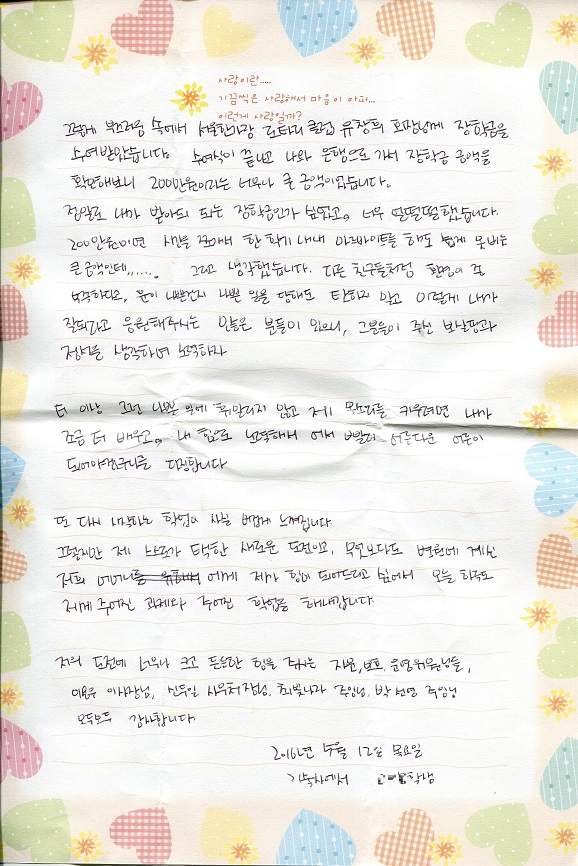 사랑이란.....
가끔씩은 사랑해서 마음이 아퍼...
이런게 사랑일까?
그렇게 부끄러움 속에서 서울한강 로타리 클럽 유창희 회장님께 장학금을
수여받았습니다. 수여식이 끝나고 나와 은행으로 가서 장학금 금액을
확인해보니 200만원이라는 너무나 큰 금액이었습니다.
정말로 내가 받아도 되는 장학금인가 싶었고, 너무 떨떨떨했습니다.
200만원이면 시간을 쪼개서 한 학기 내내 아르바이트를 해도 못버는
큰 금액인데,..... 그리고 생각했습니다. 다른 친구들처럼 환경이 좀
부족하다고, 운이 나쁜건지 나쁜 일을 당해도 탓하지 않고 이렇게 내가
잘되라고 응원해주시는 많은 분들이 있으니, 그분들이 주신 보살핌과
정성을 생각하며 노력하자
더 이상 그런 나쁜 악에 휘말리지 않고 제 목소리를 키우려면 내가
조금 더 배우고, 내 힘으로 노력해서 어서 빨리 아름다운 어른이
되어야겠구나를 다짐합니다
또 다시 시작하는 학업이 사실 버겁게 느껴집니다.
그렇지만 제 스스로가 택한 새로운 도전이고, 무엇보다도 병원에 계신
저희 어머니 에게 제가 힘이 되어드리고 싶어서 오늘 하루도
제게 주어진 과제와 주어진 학업을 해내갑니다.
저의 도전에 너무나 크고 든든한 힘을 주시는 자문,보프,운영위원님들,
이사장님, 신두일 사무처장님, 최빛나라 주임님, 박선영 주임님
모두모두 감사합니다
2016년 월 12일 목요일
기숙사에서 학생